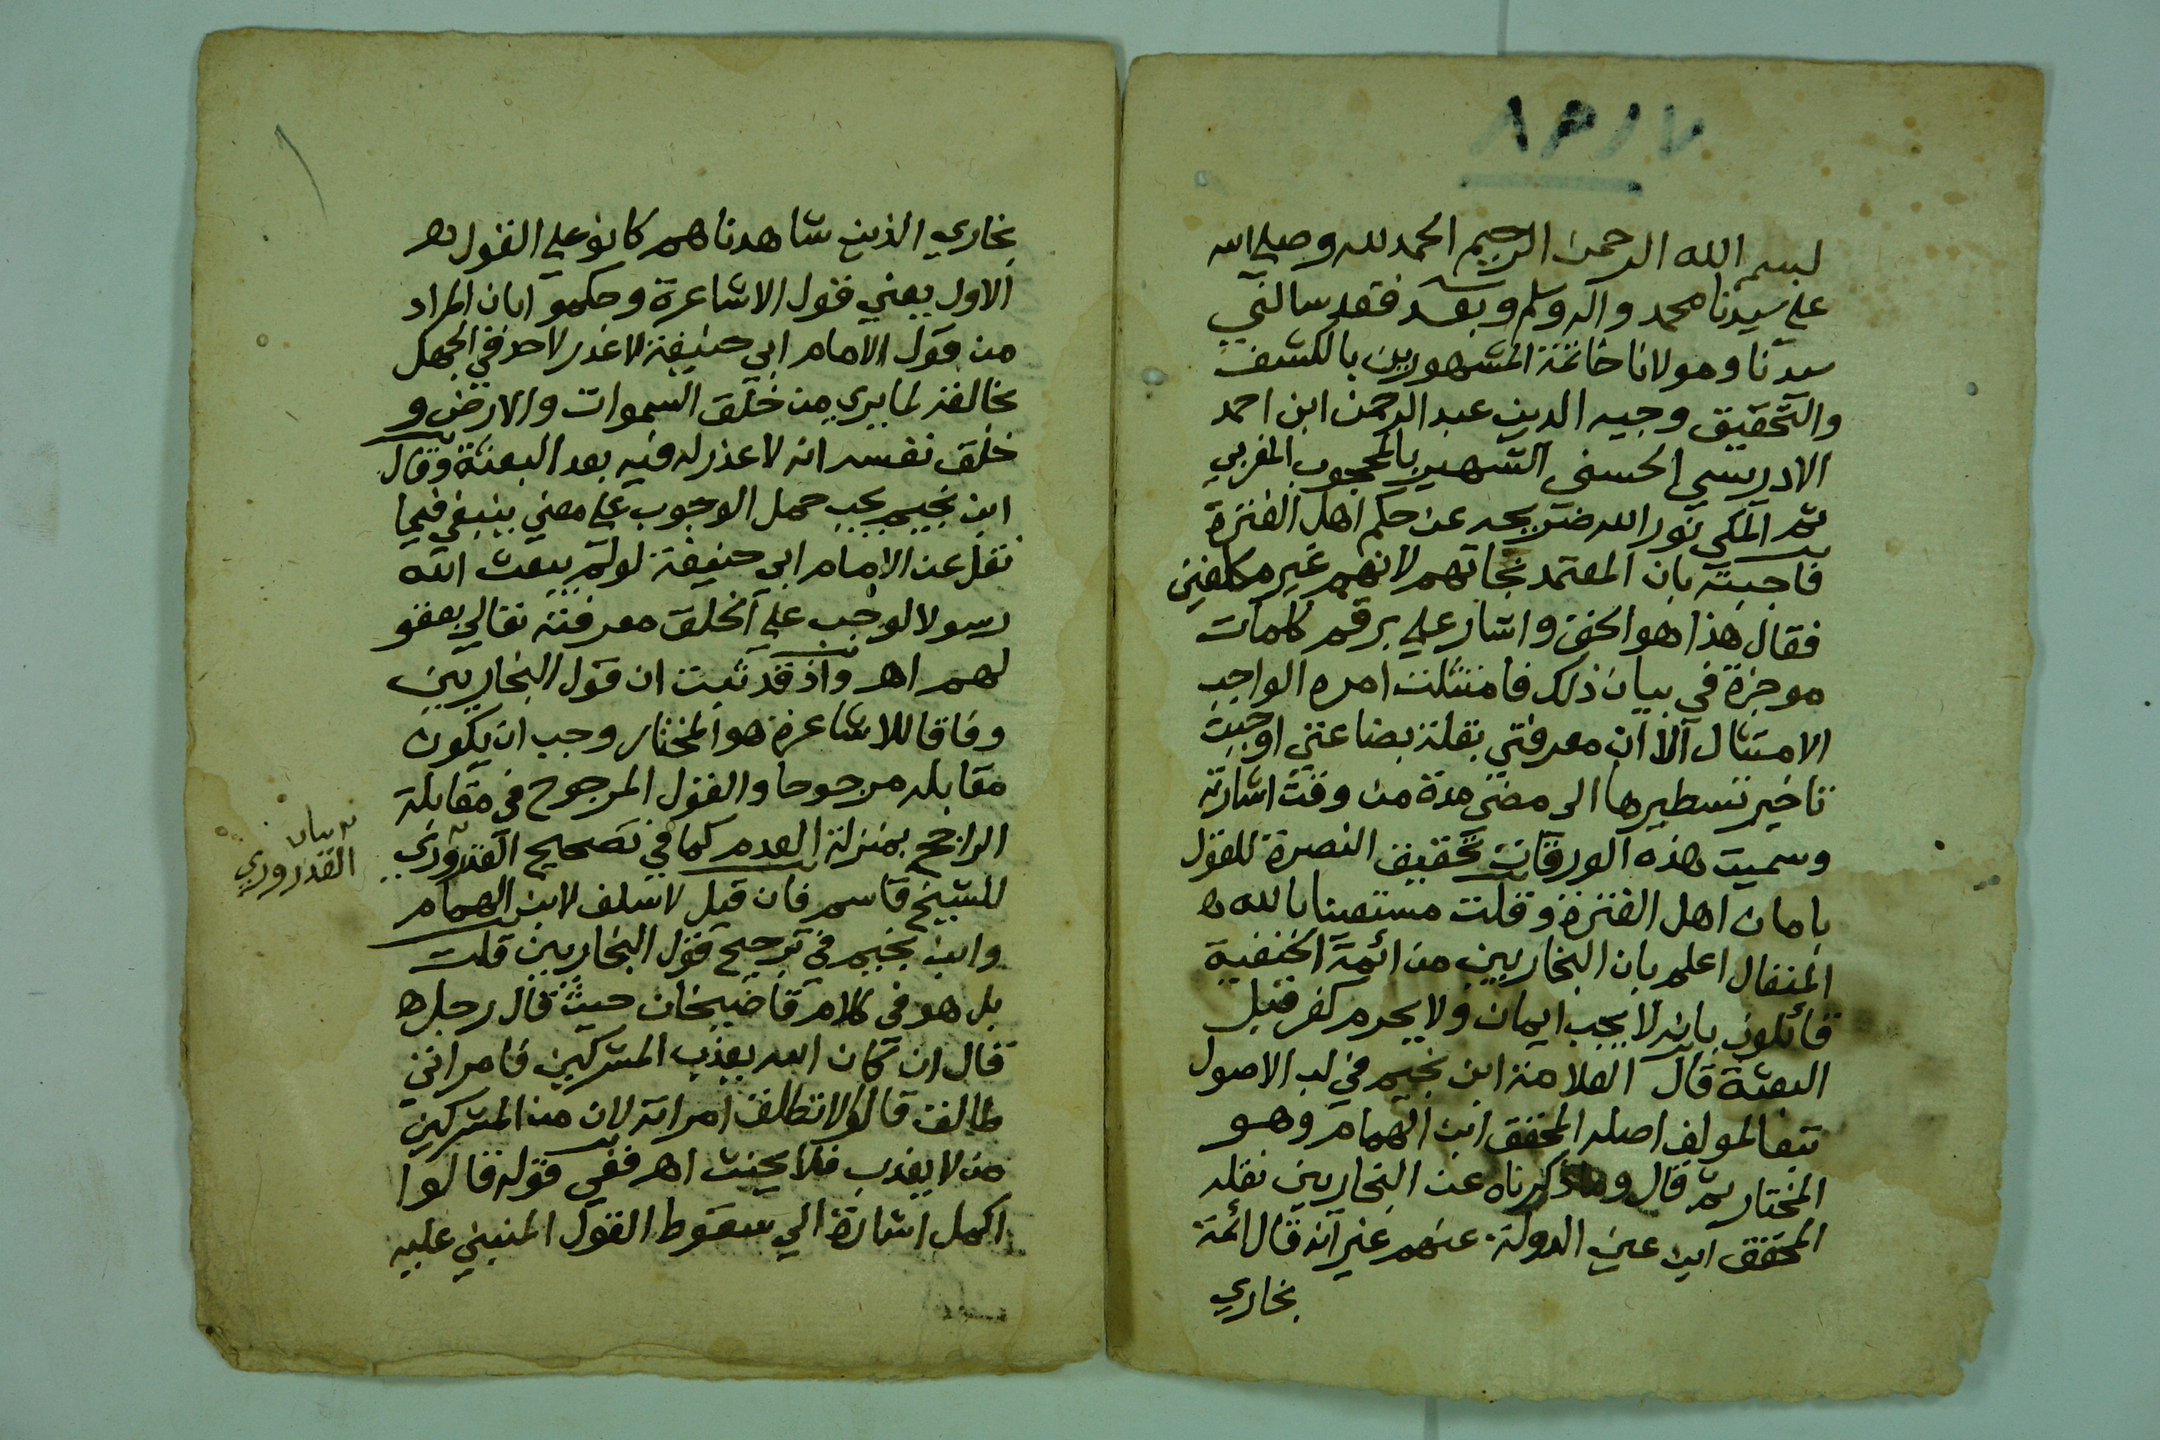 ٨٣١٧
بسم الله الرحمن الرحيم الحمد لله وصلي الله
علي سيدنا محمد واله وسلم وبعد فقد سالني
سيدنا ومولانا خاتمة المشهورين بالكشف
والتحقيق وجيه الدين عبد الرحمن ابن احمد
الادريسي الحسني الشهير بالمحجوب المغربي
ثم المكي نور الله ضريحه عن حكم اهل الفترة
فاجبته بان المعتمد نجاتهم لانهم غير مكلفين
فقال هذا هو الحق واشار علي برقم كلمات
موجزة في بيان ذلك فامتثلت امره الواجب
الامتثال الا ان معرفتي بقلة بضاعتي اوجبت
تاخير تسطيرها الى مضي مدة من وقت اشارته
وسميت هذه الورقات تحقيق النصرة للقول
بامان اهل الفترة وقلت مستعينا بالله
المتفال اعلم بان البخاريين من ائمة الحنفية
قائلون بانه لا يجب ايمان ولا يحرم كفر قبل
البعثة قال العلامة ابن نجيم في لب الاصول
تبعا لمولف اصله المحقق ابن الهمام وهو
المختار ثم قال وما ذكرناه عن البخاريين نقله
المحقق ابن عين الدولة عنهم غير انه قال ائمة
بخاري
بخاري الذين شاهدناهم كانو علي القول
الاول يعني قول الاشاعرة وحكمو ابان المراد
من قول الامام ابي حنيفة لاعذر لاحد في الجهل
بخالقه لما يري من خلق السموات والارض و
خلق نفسه انه لا عذر له فيه بعد البعثة وقال
ابن نجيم يجب حمل الوجوب علي معني ينبغي فيما
نقل عن الامام ابي حنيفة لو لم يبعث الله
رسولا لوجب علي الخلق معرفته تعالي بعقو
لهم اهـ واذ قد ثبت ان قول البخاريين
وفاقا للاشاعرة هو المختار وجب ان يكون
مقابله مرجوحا والقول المرجوح في مقابلة
الراجح بمنزلة العدم كما في تصحيح القدوري
بيان
القدروري
للشيخ قاسم فان قيل لا سلف لابن الهمام
وابن نجيم في ترجيح قول البخاريين قلت
بل هو في كلام قاضيخان حيث قال رجل
قال ان كان الله يعذب المشركين فامراتي
طالق قالوا لا تطلق امراته لان من المشركين
من لا يعذب فلا يحنث اهـ ففي قوله قالوا
اكمل اشارة الي سقوط القول المنبني عليه